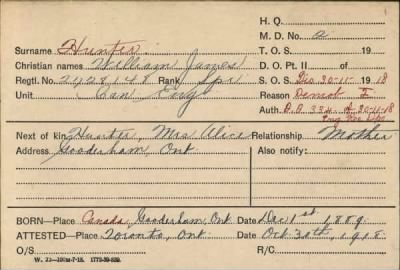 H. Q.
M. D. No. 2
Surname Hunter
T. O. S. 19
Christian names William James
D. O. Pt. II of
Regtl. No. 2428148 Rank Spr
S. O. S. Dis 30-11- 1918
Unit Can Eng
Reason Demob I
Auth. D.O 334 d- 30-11-18
Eng
Next of kin Hunter, Mrs Alice Relationship Mother
Address Gooderham, Ont Also notify:
BORN—Place Canada, Gooderham, Ont Date Dec 1st, 1889
ATTESTED—Place Toronto, Ont Date Oct 30th, 1918
O/S R/C